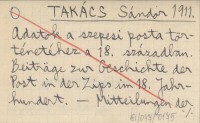 TAKÁCS Sándor 1911.
Adatok a szepesi posta tör-
ténetéhez a 18. században.
Beiträge zur Geschichte der
Post in der Zips im 18. Jahr-
hundert. — Mitteilungen der ./.